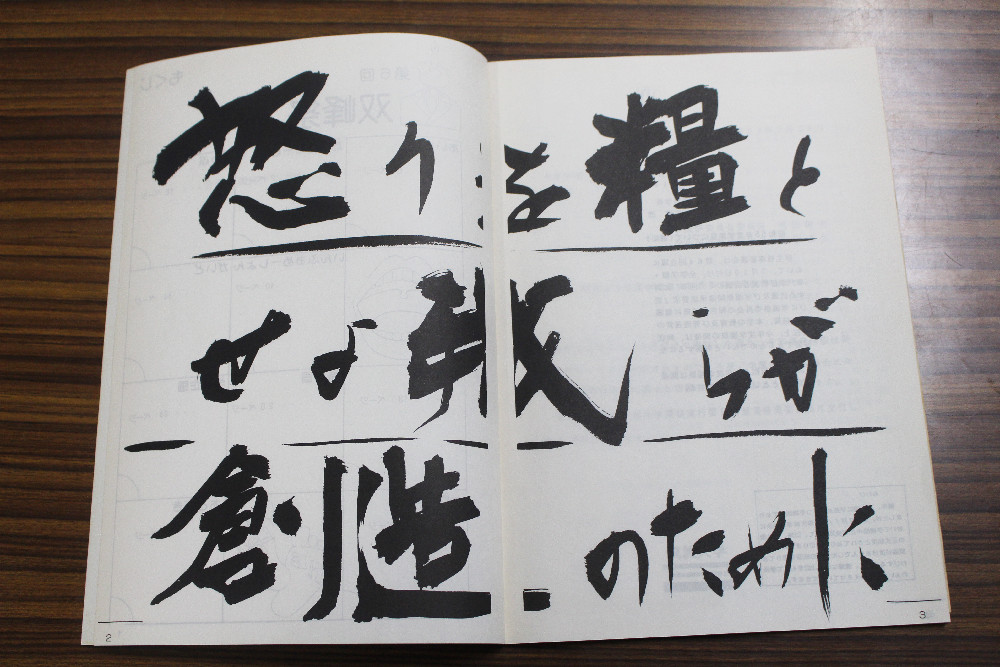 怒りを糧と
せよ我らが
創造のために
2
3